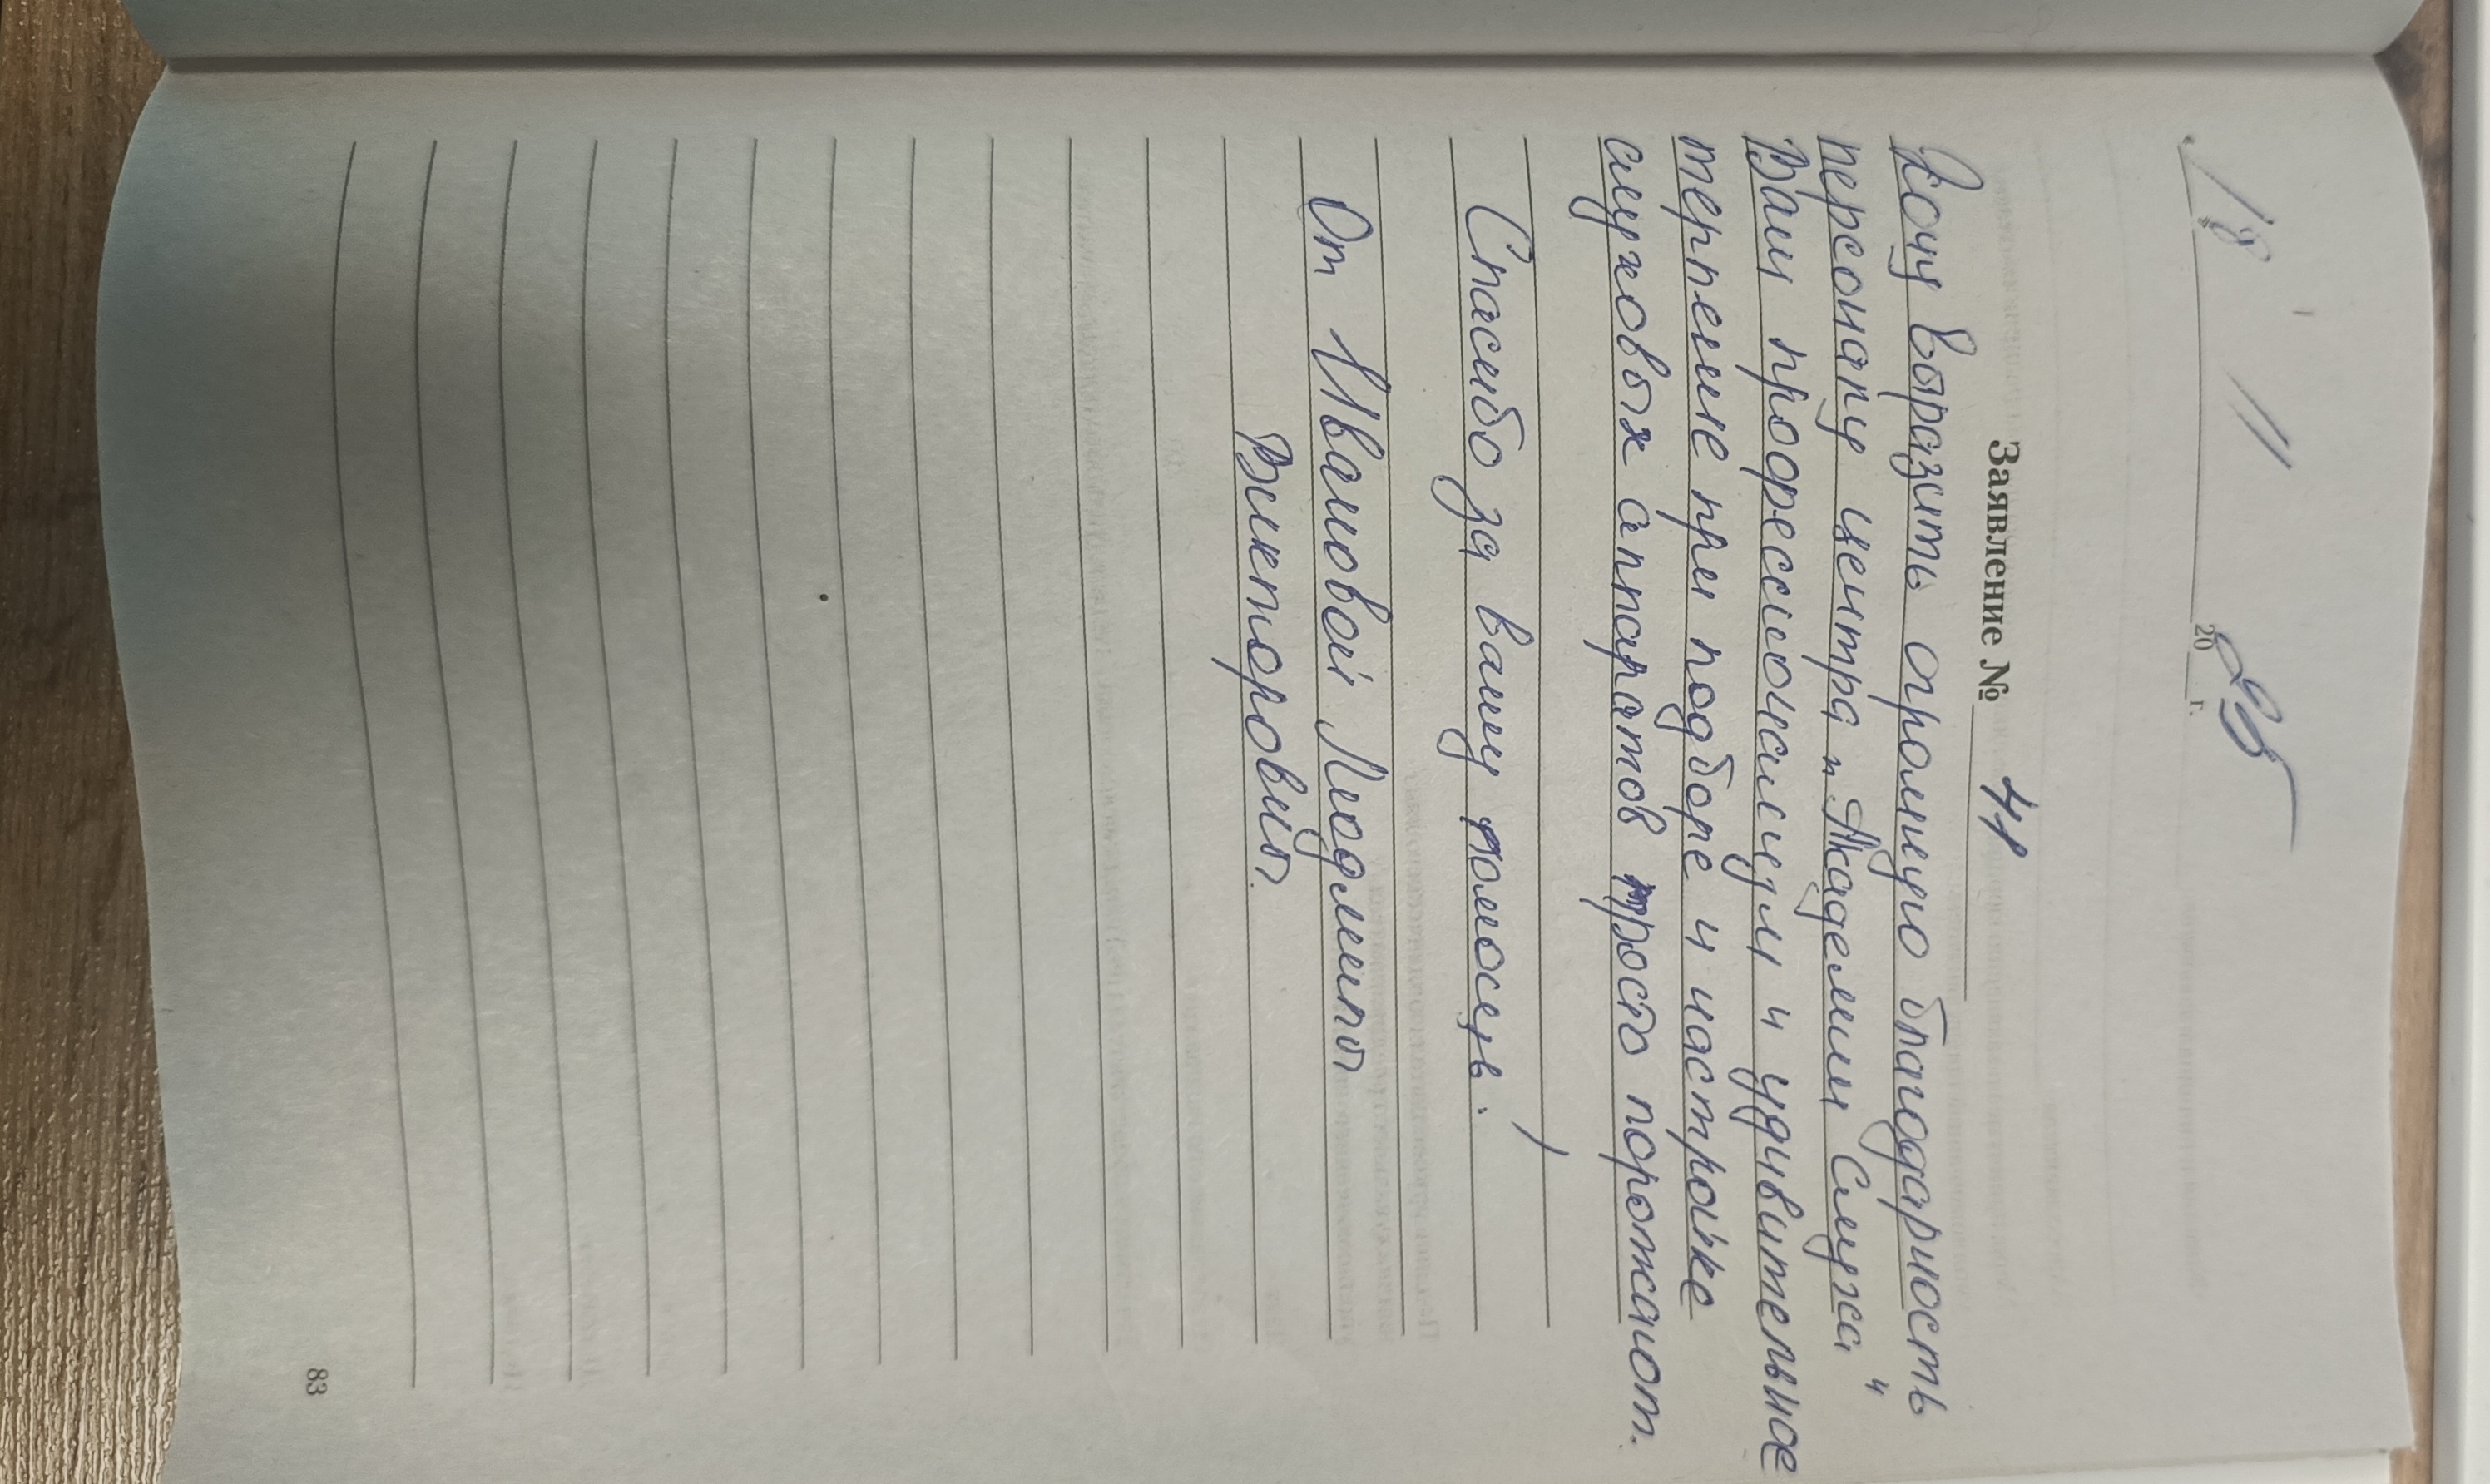 18 11 2025 г.
Заявление № 41
Хочу выразить огромную благодарность
персоналу центра „Академии Слуха"
Ваш профессионализм и удивительное
терпение при подборе и настройке
слуховых аппаратов просто поражают.
Спасибо за вашу помощь.
От Ивановой Людмилы
Викторовны.
83